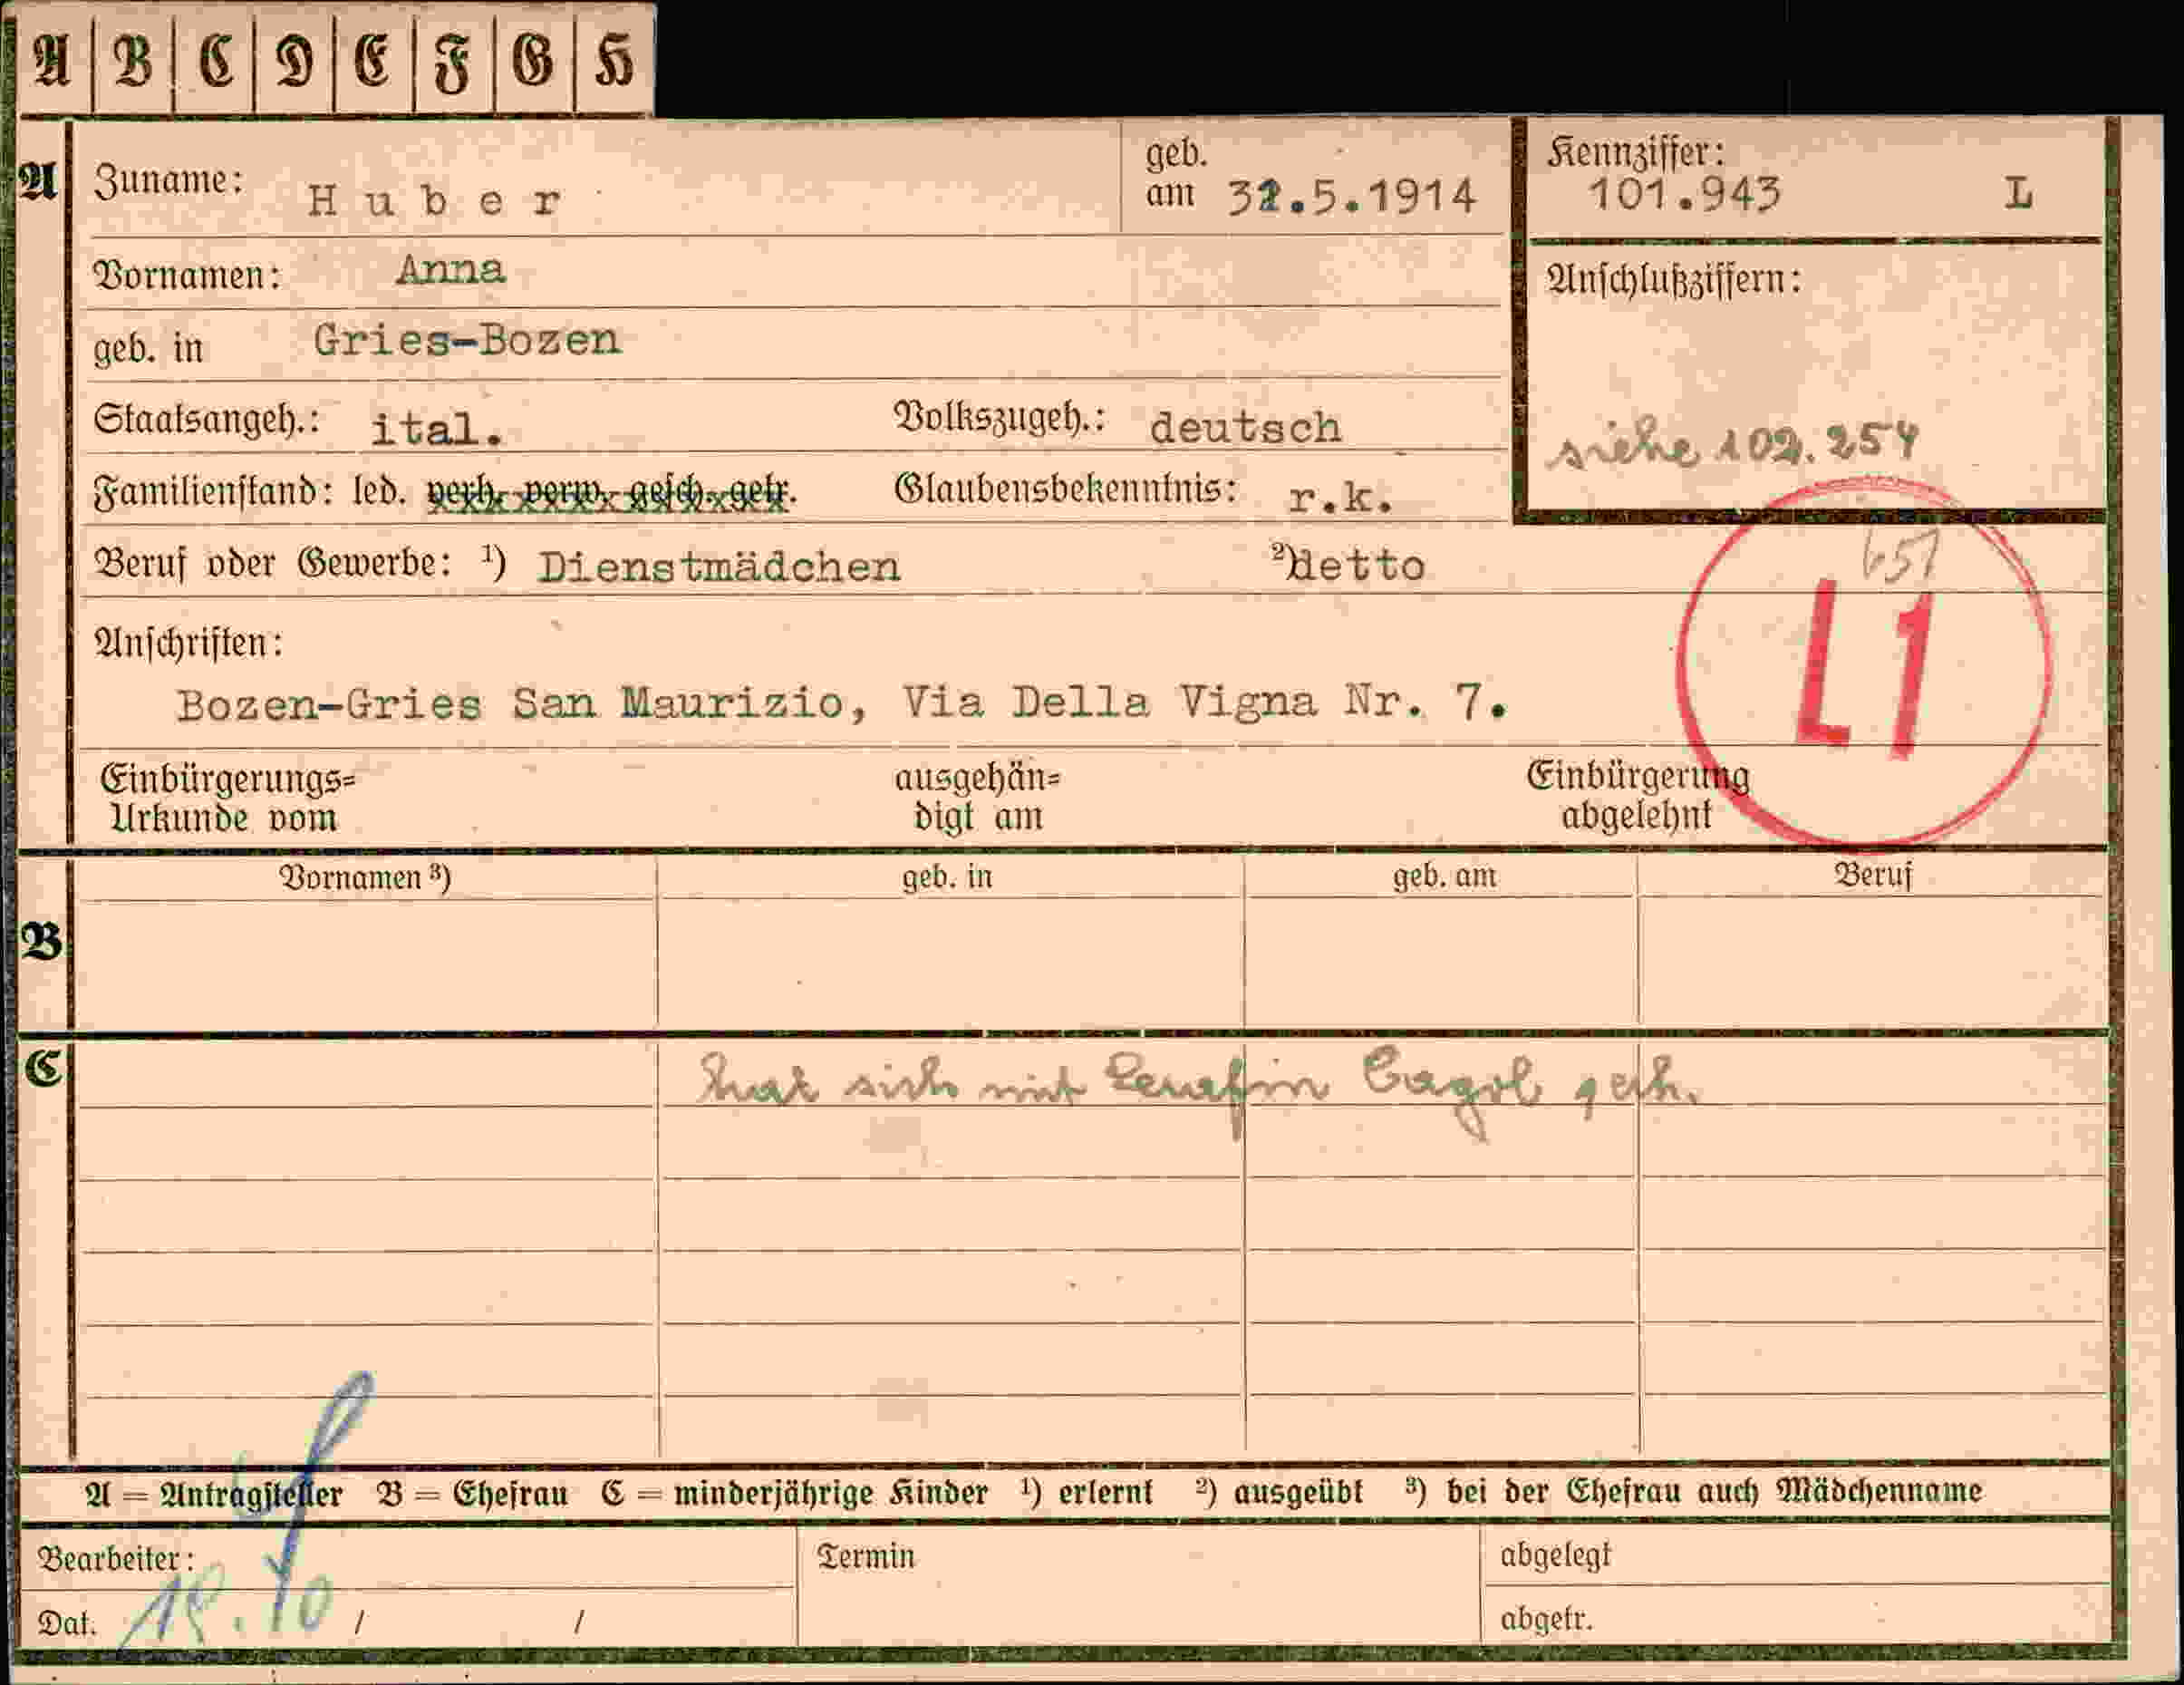 A B C D E F G H
A Zuname: Huber geb. am 31.5.1914 Kennziffer: 101.943 L
Vornamen: Anna Anschlußziffern:
geb. in Gries-Bozen
Staatsangeh.: ital. Volkszugeh.: deutsch siehe 102.254
Familienstand: led. verh. verw. gesch. getr. Glaubensbekenntnis: r.k.
Beruf oder Gewerbe: ¹) Dienstmädchen ²) detto 651
Anschriften: L1
Bozen-Gries San Maurizio, Via Della Vigna Nr. 7.
Einbürgerungs= ausgehän= Einbürgerung
Urkunde vom digt am abgelehnt
Vornamen ³) geb. in geb. am Beruf
B
C hat sich mit Serafin Cagol geh.
A = Antragsteller B = Ehefrau C = minderjährige Kinder ¹) erlernt ²) ausgeübt ³) bei der Ehefrau auch Mädchenname
Bearbeiter: Termin abgelegt
Dat. / / abgetr.